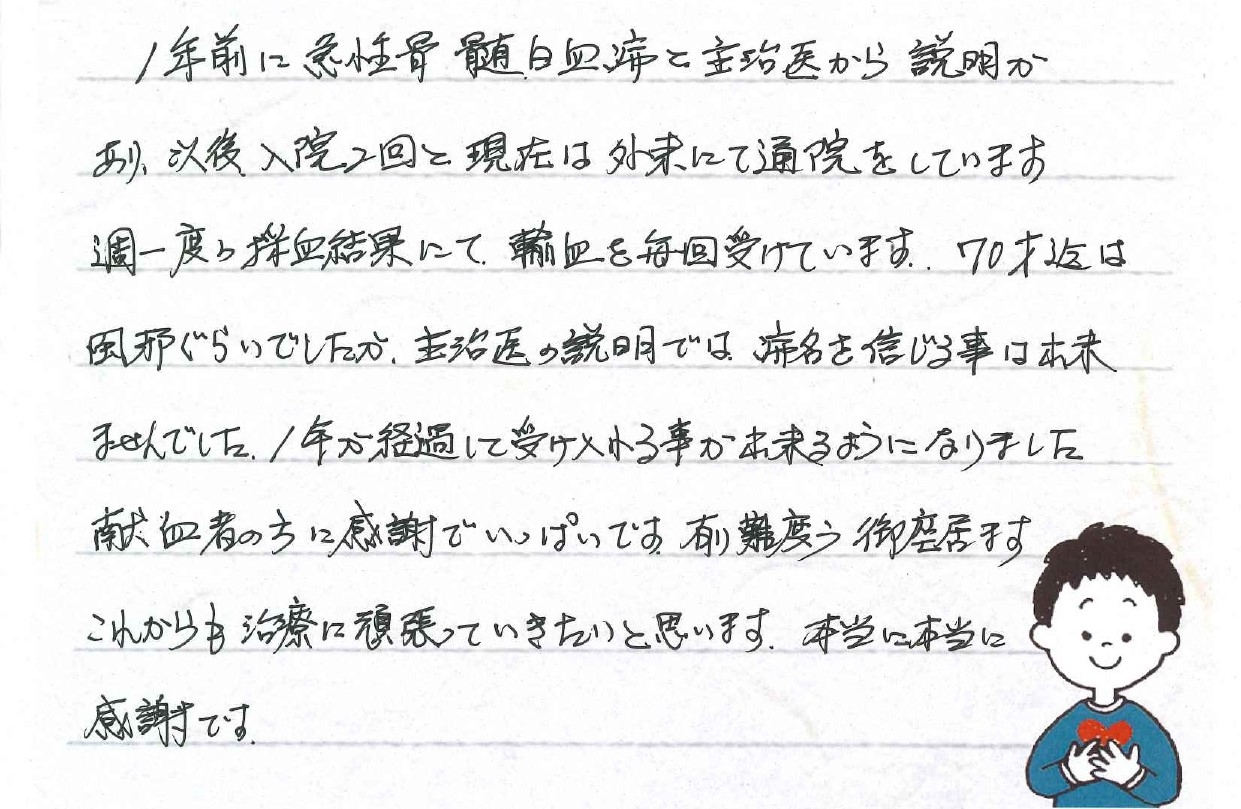 1年前に急性骨髄白血病と主治医から説明が
あり、以後、入院2回と現在は外来にて通院をしています
週一度の採血結果にて、輸血を毎回受けています。70才迄は
風邪ぐらいでしたが、主治医の説明では、病名を信じる事は出来
ませんでした。1年が経過して受け入れる事が出来るようになりました
献血者の方に感謝でいっぱいです。有難度う御座居ます
これからも治療に頑張っていきたいと思います。本当に本当に
感謝です。